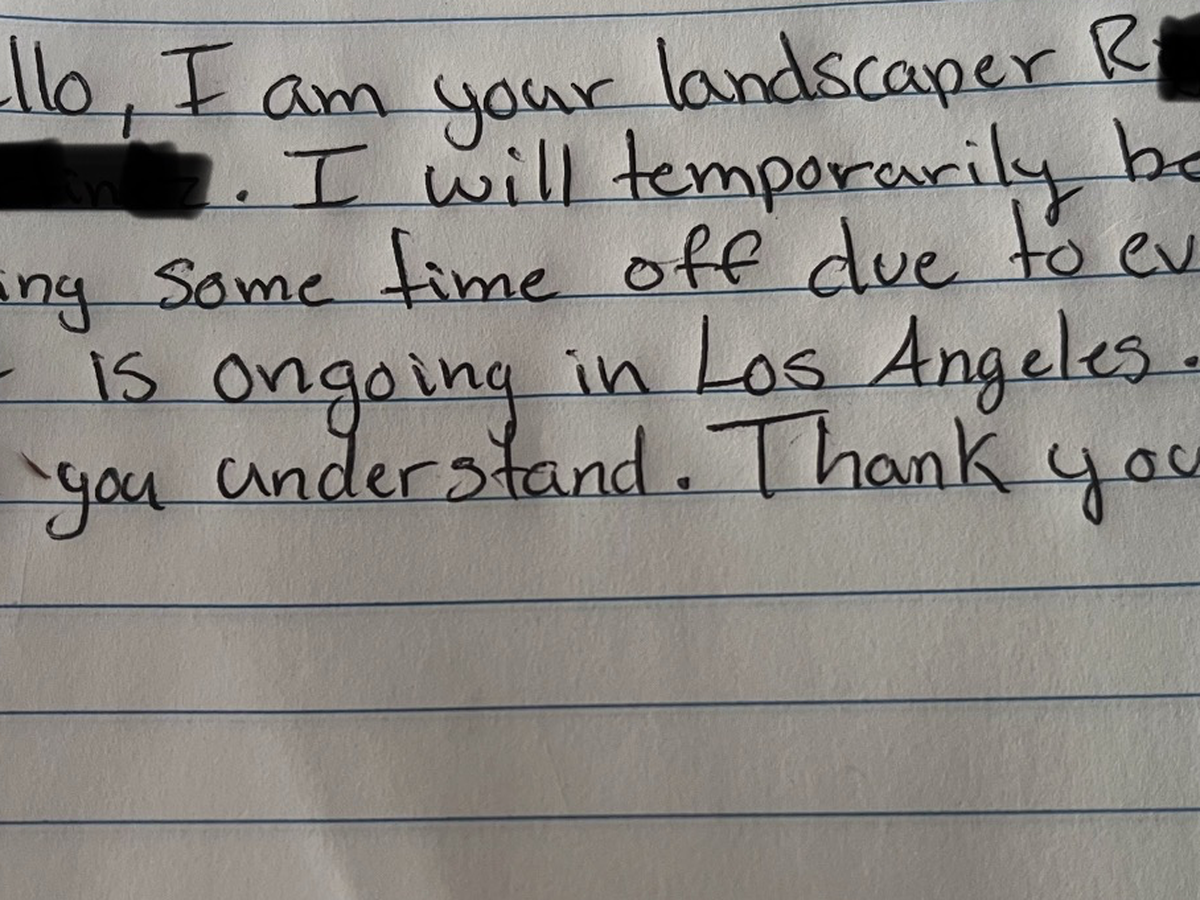 llo, I am your landscaper
. I will temporarily be
ing some time off due to ev
is ongoing in Los Angeles.
you understand. Thank you